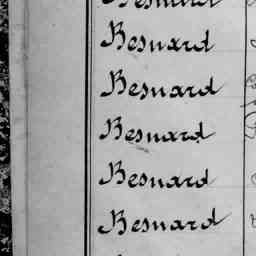 Besnard
Besnard
Besnard
Besnard
Besnard
Besnard